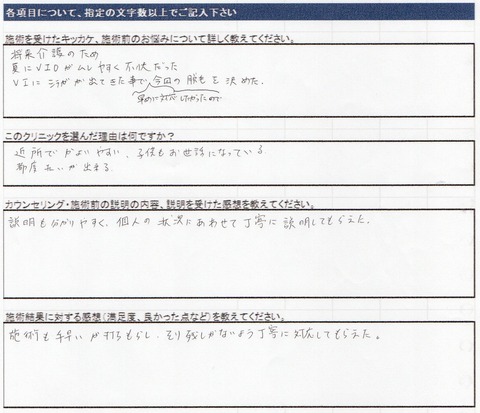 各項目について、指定の文字数以上でご記入下さい
施術を受けたキッカケ、施術前のお悩みについて詳しく教えてください。
将来介護のため
夏にVIOがムレやすく不快だった
VIに シラガが出てきた事で、今回の脱毛を決めた。
早めに対応したかったので
このクリニックを選んだ理由は何ですか？
近所でかよいやすい、子供もお世話になっている
都度払いが出来る
カウンセリング・施術前の説明の内容、説明を受けた感想を教えてください。
説明も分かりやすく、個人の状況にあわせて丁寧に説明してもらえた。
施術結果に対する感想（満足度、良かった点など）を教えてください。
施術も手早いが打ちもらし、そり残しがないよう丁寧に対応してもらえた。